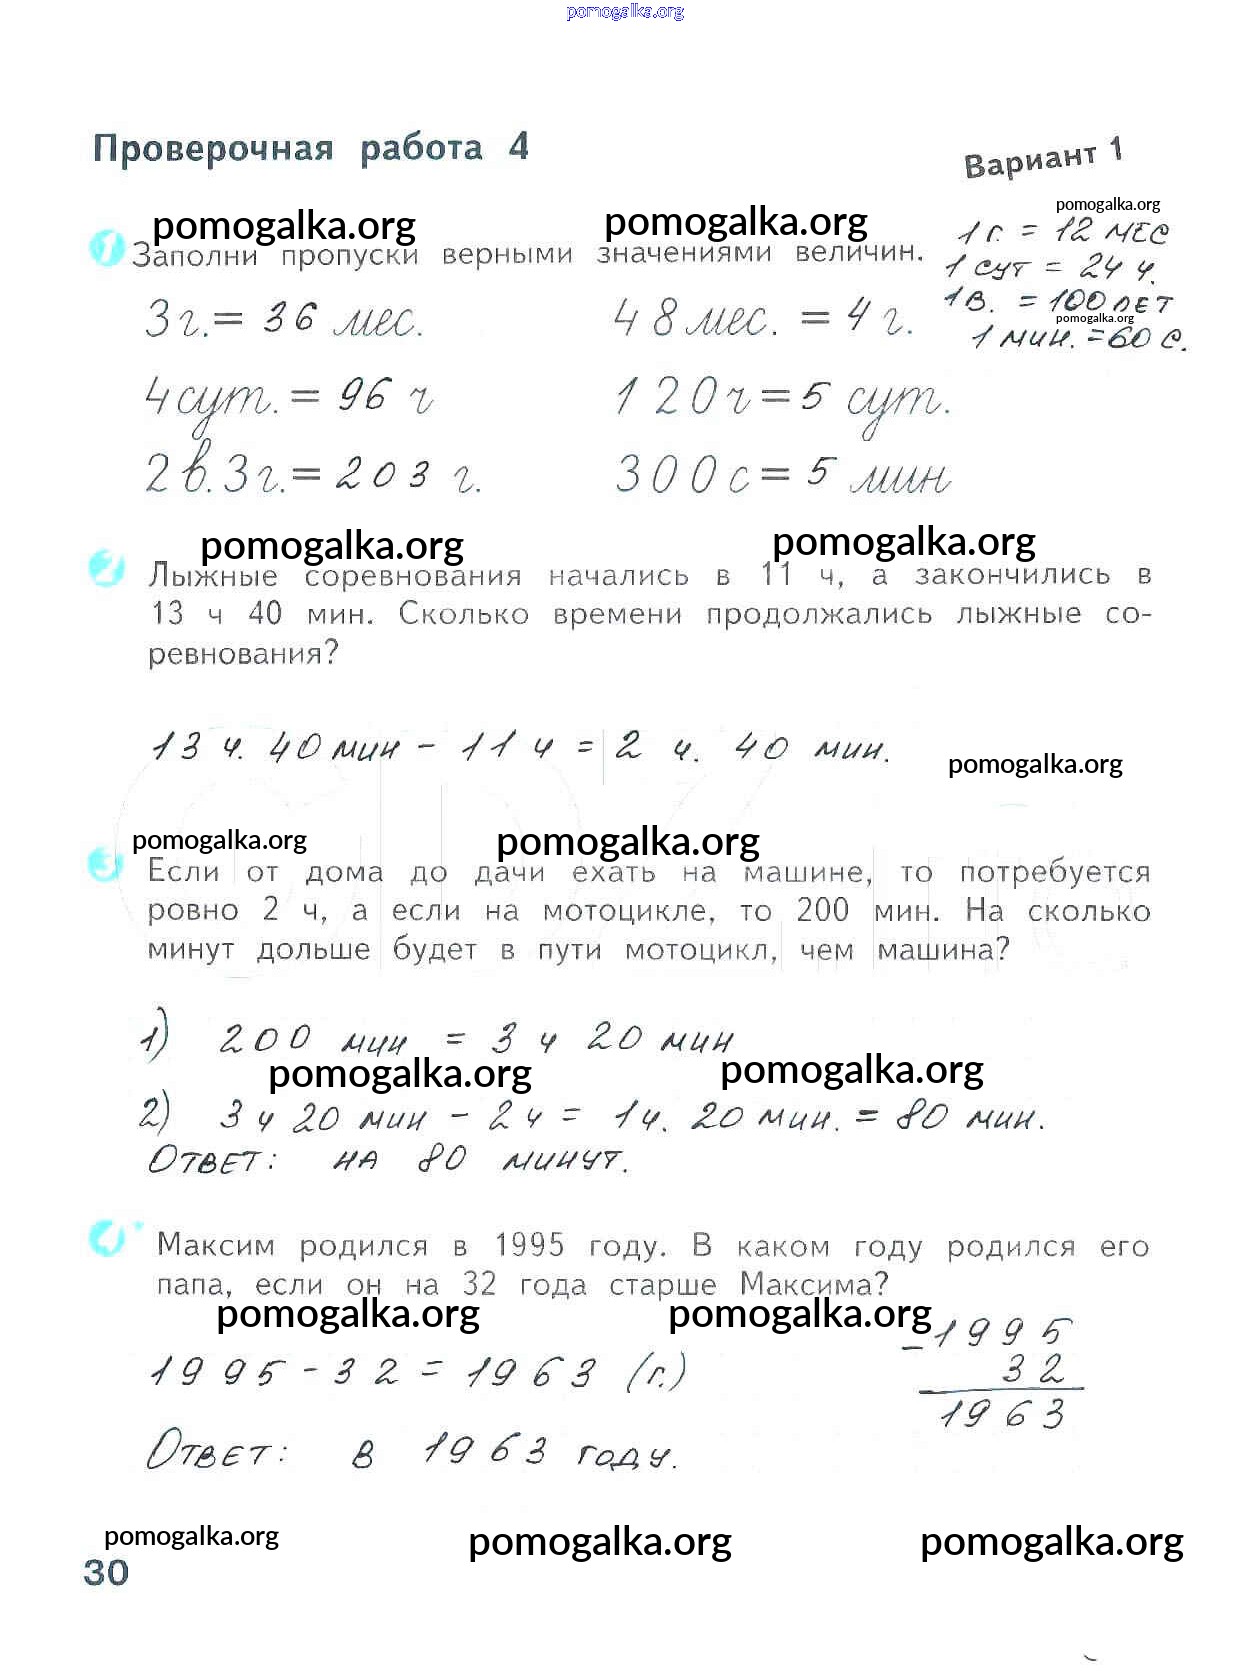 pomogalka.org
Проверочная работа 4
Вариант 1
pomogalka.org
pomogalka.org
pomogalka.org
1 Заполни пропуски верными значениями величин.
1 г. = 12 мес
1 сут = 24 ч.
1 в. = 100 лет
pomogalka.org
1 мин. = 60 с.
3 г. = 36 мес. 48 мес. = 4 г.
4 сут. = 96 ч 120 ч = 5 сут.
2 в. 3 г. = 203 г. 300 с = 5 мин
pomogalka.org
pomogalka.org
2 Лыжные соревнования начались в 11 ч, а закончились в
13 ч 40 мин. Сколько времени продолжались лыжные со-
ревнования?
13 ч. 40 мин - 11 ч = 2 ч. 40 мин.
pomogalka.org
pomogalka.org
pomogalka.org
3 Если от дома до дачи ехать на машине, то потребуется
ровно 2 ч, а если на мотоцикле, то 200 мин. На сколько
минут дольше будет в пути мотоцикл, чем машина?
1) 200 мин = 3 ч 20 мин
pomogalka.org
pomogalka.org
2) 3 ч 20 мин - 2 ч = 1 ч. 20 мин. = 80 мин.
Ответ: на 80 минут.
4* Максим родился в 1995 году. В каком году родился его
папа, если он на 32 года старше Максима?
pomogalka.org
pomogalka.org
1995 - 32 = 1963 (г.)
- 1995
32
1963
Ответ: в 1963 году.
pomogalka.org
pomogalka.org
pomogalka.org
30